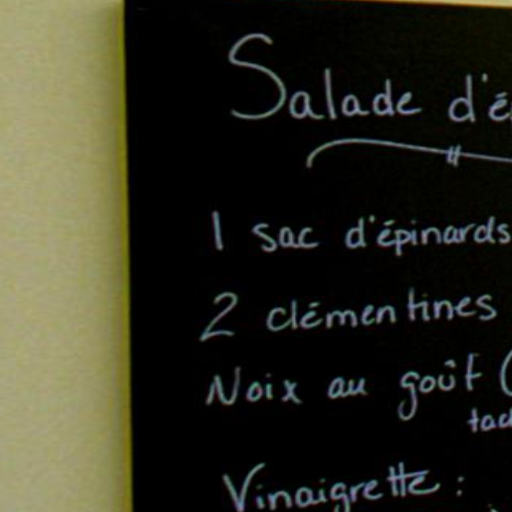 Salade d'é
1 sac d'épinards
2 clémentines
Noix au goût (
Vinaigrette :